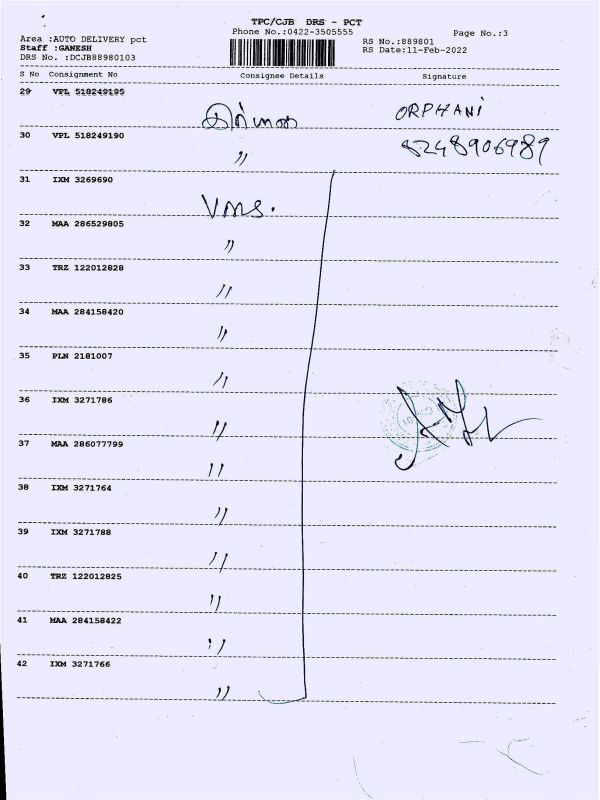 TPC/CJB DRS - PCT
Phone No.:0422-3505555
Page No.:3
Area :AUTO DELIVERY pct
RS No.:889801
Staff :GANESH
RS Date:11-Feb-2022
DRS No. :DCJB88980103
S No Consignment No Consignee Details Signature
29 VPL 518249195 ORPHANi
30 VPL 518249190 〃 8248906989
31 IXM 3269690 VMS.
32 MAA 286529805 〃
33 TRZ 122012828 〃
34 MAA 284158420 〃
35 PLN 2181007 〃
36 IXM 3271786 〃
37 MAA 286077799 〃
38 IXM 3271764 〃
39 IXM 3271788 〃
40 TRZ 122012825 〃
41 MAA 284158422 〃
42 IXM 3271766 〃